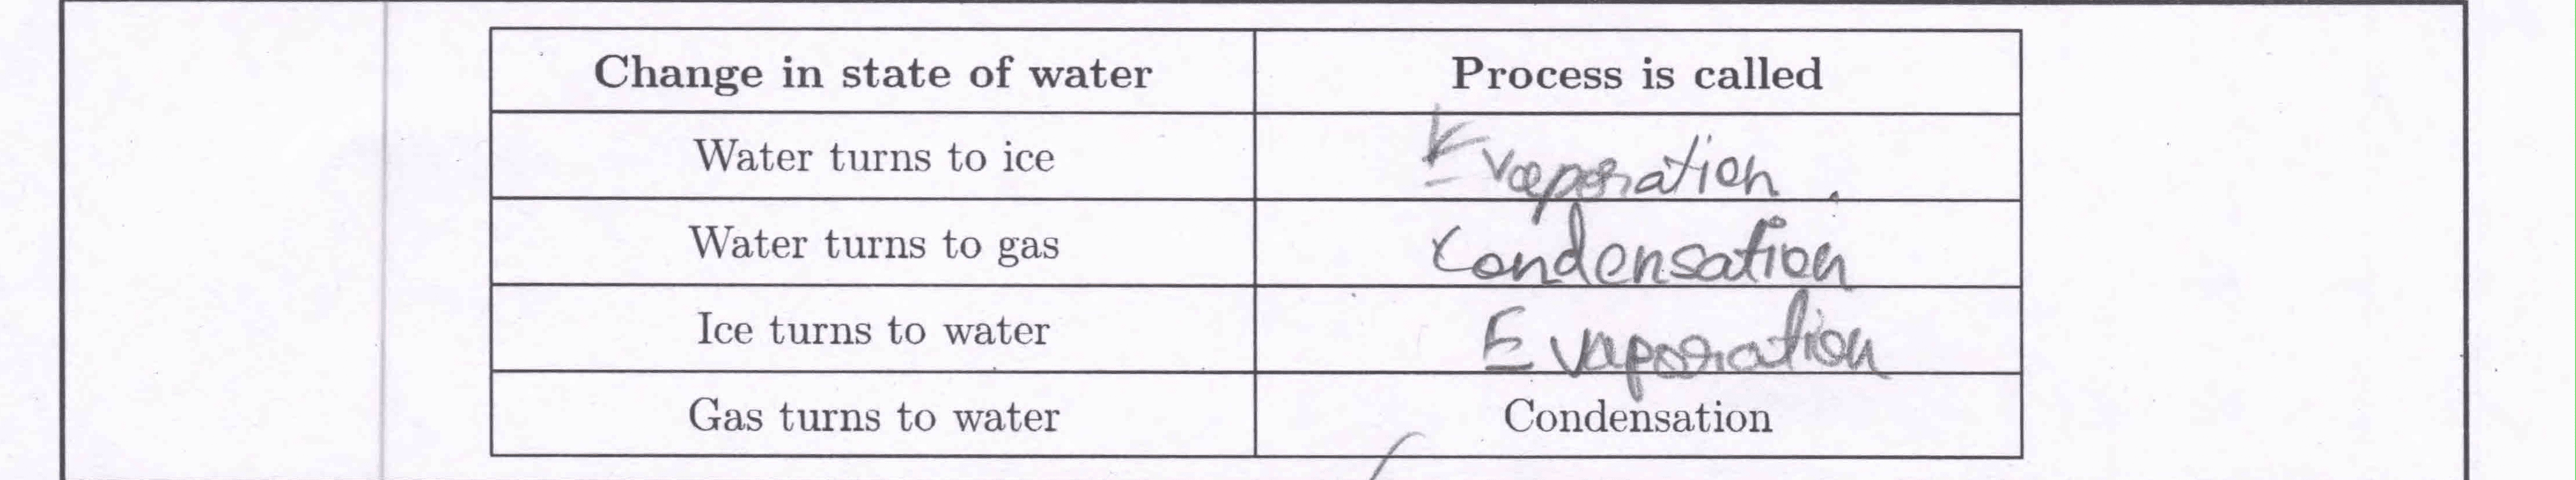 Change in state of water Process is called
Water turns to ice Evaporation
Water turns to gas Condensation
Ice turns to water Evaporation
Gas turns to water Condensation